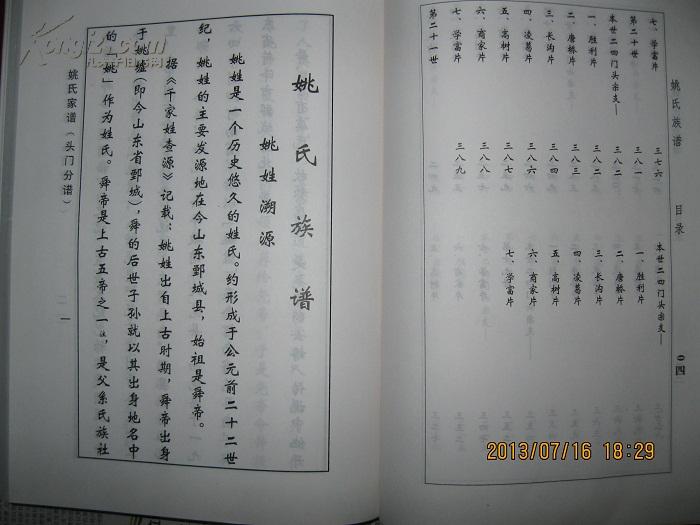 姚氏族谱
目录
〇四
七、学富片 三七六
第二十世
本世二四门头宗支——
一、胜利片 三八一
二、唐桥片 三八二
三、长沟片 三八二
四、凌葛片 三八四
五、高树片 三八五
六、商家片 三八七
七、学富片 三八九
第二十一世
本世二四门头宗支——
一、胜利片
二、唐桥片
三、长沟片
四、凌葛片
五、高树片
六、商家片
七、学富片
姚氏族谱
姚姓溯源
姚姓是一个历史悠久的姓氏。约形成于公元前二十二世
纪，姚姓的主要发源地在今山东鄄城县，始祖是舜帝。
据《千家姓查源》记载：姚姓出自上古时期，舜帝出身
于姚墟（即今山东省鄄城），舜的后世子孙就以其出身地名中
的「姚」作为姓氏。舜帝是上古五帝之一注，是父系氏族社
姚氏家谱（头门分谱）
一
2013/07/16 18:29